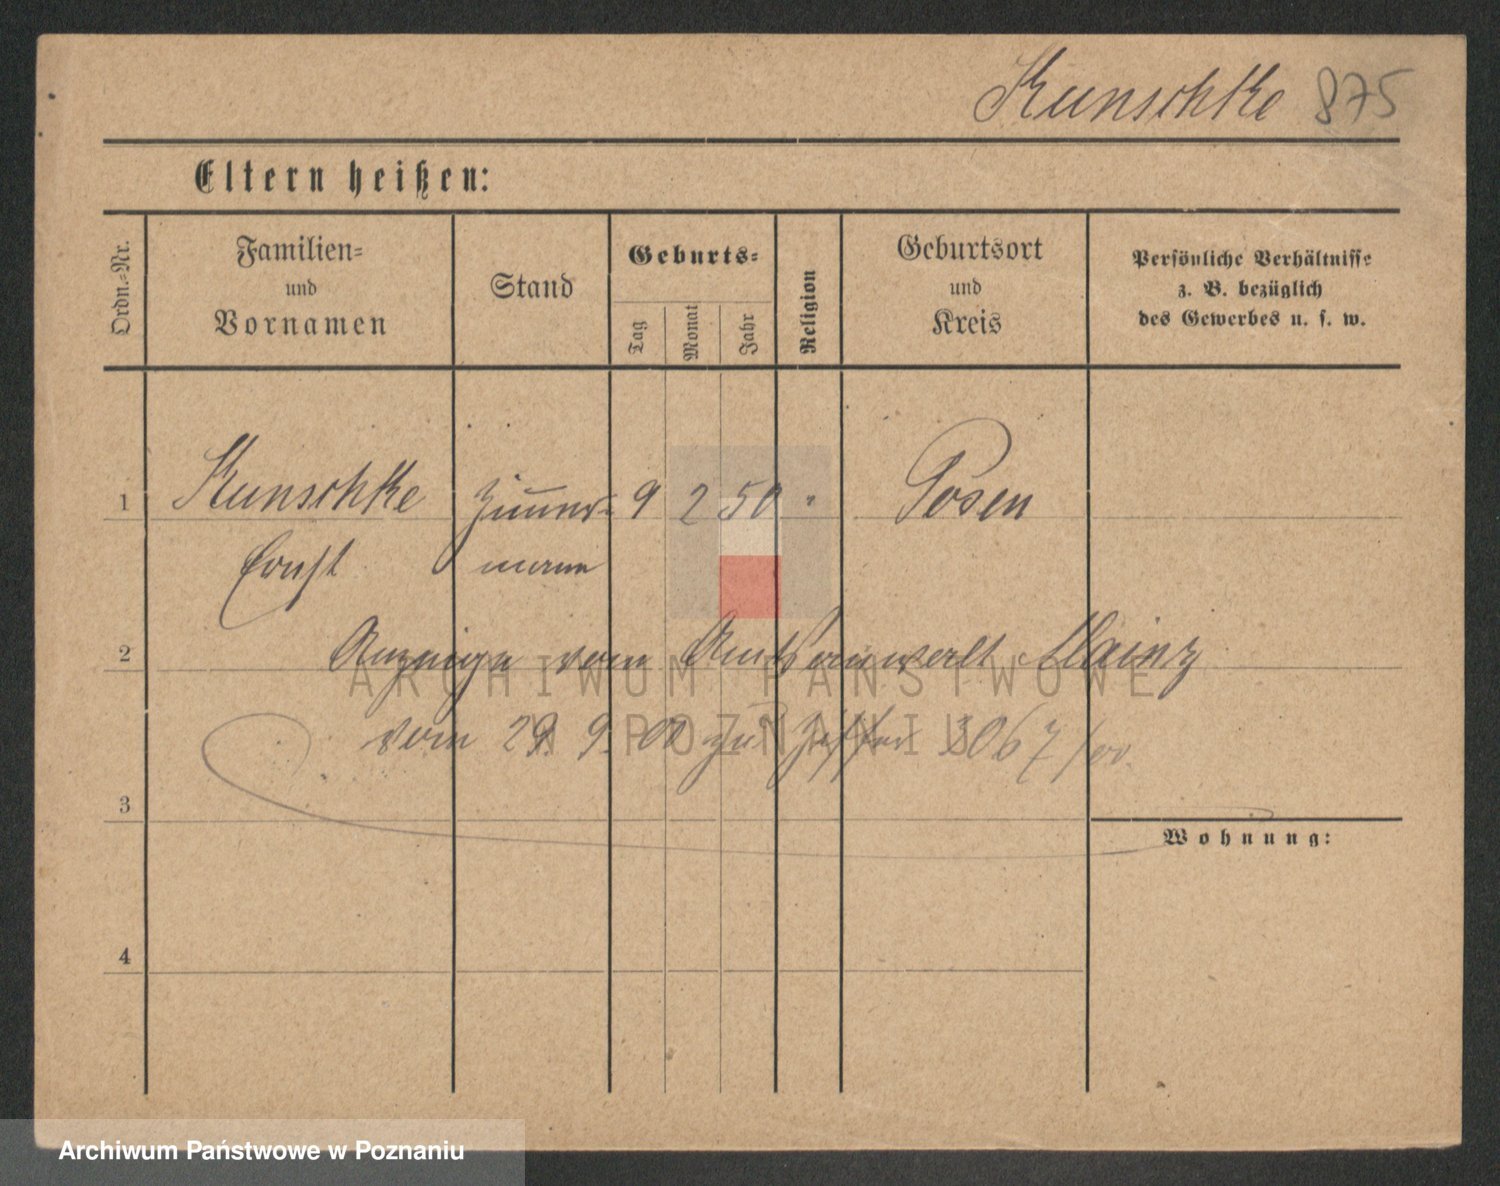 Kunschke 875
Eltern heißen:
Ordn.-Nr.
Familien-
und
Vornamen
Stand
Geburts-
Tag
Monat
Jahr
Religion
Geburtsort
und
Kreis
Persönliche Verhältnisse
z. B. bezüglich
des Gewerbes u. s. w.
1 Kunschke Zimmer- 9 2 50 Posen
Ernst mann
2 Anzeige vom Amtsanwalt Mainz
ARCHIWUM PAŃSTWOWE
vom 29. 9. 00 zu Ziffer 3067/00.
W POZNANIU
3
Wohnung:
4
Archiwum Państwowe w Poznaniu